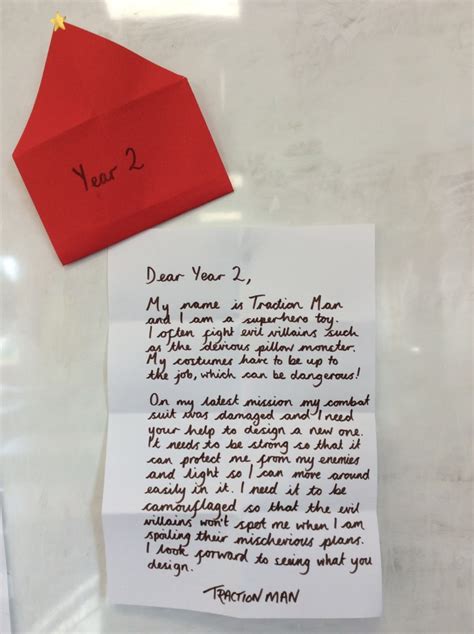 Year 2
Dear Year 2,
My name is Traction Man
and I am a superhero toy.
I often fight evil villains such
as the devious pillow monster.
My costumes have to be up to
the job, which can be dangerous!
On my latest mission my combat
suit was damaged and I need
your help to design a new one.
It needs to be strong so that it
can protect me from my enemies
and light so I can move around
easily in it. I need it to be
camouflaged so that the evil
villains won't spot me when I am
spoiling their mischevious plans.
I look forward to seeing what you
design.
TRACTION MAN